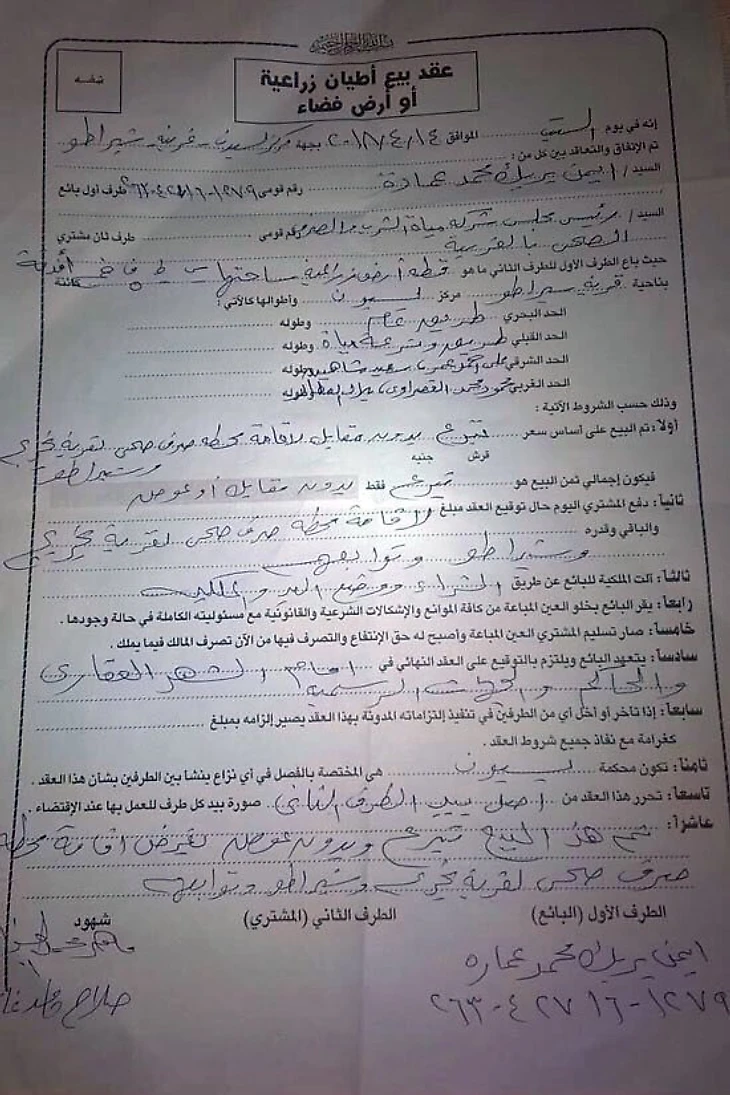 بسم الله الرحمن الرحيم
عقد بيع أطيان زراعية
أو أرض فضاء
إنه في يوم السبت الموافق ٢٠١٨/٤/١٤ بجهة مركز بسيون - قرية شبراطو
تم الإتفاق والتعاقد بين كل من :
السيد / ايمن محمد عمارة رقم قومى طرف أول بائع
السيد / رئيس مجلس شركة مياة الشرب والصرف رقم قومى طرف ثان مشتري
الصحى بالغربية
حيث باع الطرف الأول للطرف الثاني ما هو قطعه أرض زراعية مساحتها أفدنة
بناحية قرية شبراطو مركز بسيون وأطوالها كالآتي : كائنة
الحد البحري طريق عام وطوله
الحد القبلي طريق وترعة مياة وطوله
الحد الشرقي سعيد شاهين وطوله
الحد الغربي محمود محمد وطوله
وذلك حسب الشروط الآتية :
أولاً : تم البيع على أساس سعر تبرع بدون مقابل لاقامة محطه صرف صحى لقرية
قرش جنيه وشبراطو
فيكون إجمالي ثمن البيع هو تبرع فقط بدون مقابل أو عوض
ثانياً : دفع المشتري اليوم حال توقيع العقد مبلغ لاقامة محطة صرف صحى لقرية
والباقي وقدره
وشبراطو وتوابعهم
ثالثاً : آلت الملكية للبائع عن طريق الشراء ووضع اليد
رابعاً : يقر البائع بخلو العين المباعة من كافة الموانع والإشكالات الشرعية والقانونية مع مسئوليته الكاملة في حالة وجودها .
خامساً : صار تسليم المشتري العين المباعة وأصبح له حق الإنتفاع والتصرف فيها من الآن تصرف المالك فيما يملك .
سادساً : يتعهد البائع ويلتزم بالتوقيع على العقد النهائي في امام الشهر العقارى
والمحاكم والجهات الرسمية
سابعاً : إذا تأخر أو أخل أي من الطرفين في تنفيذ إلتزاماته المدونة بهذا العقد يصير إلزامه بمبلغ
كغرامة مع نفاذ جميع شروط العقد .
ثامناً : تكون محكمة بسيون هي المختصة بالفصل في أي نزاع ينشا بين الطرفين بشان هذا العقد .
تاسعاً : تحرر هذا العقد من اصل بيد الطرف الثانى صورة بيد كل طرف للعمل بها عند الإقتضاء .
عاشراً : تم هذا البيع تبرع وبدون عوض لغرض اقامة محطة
صرف صحى لقرية وشبراطو وتوابعهم
الطرف الأول (البائع) الطرف الثاني (المشتري) شهود
ايمن محمد عماره
صلاح